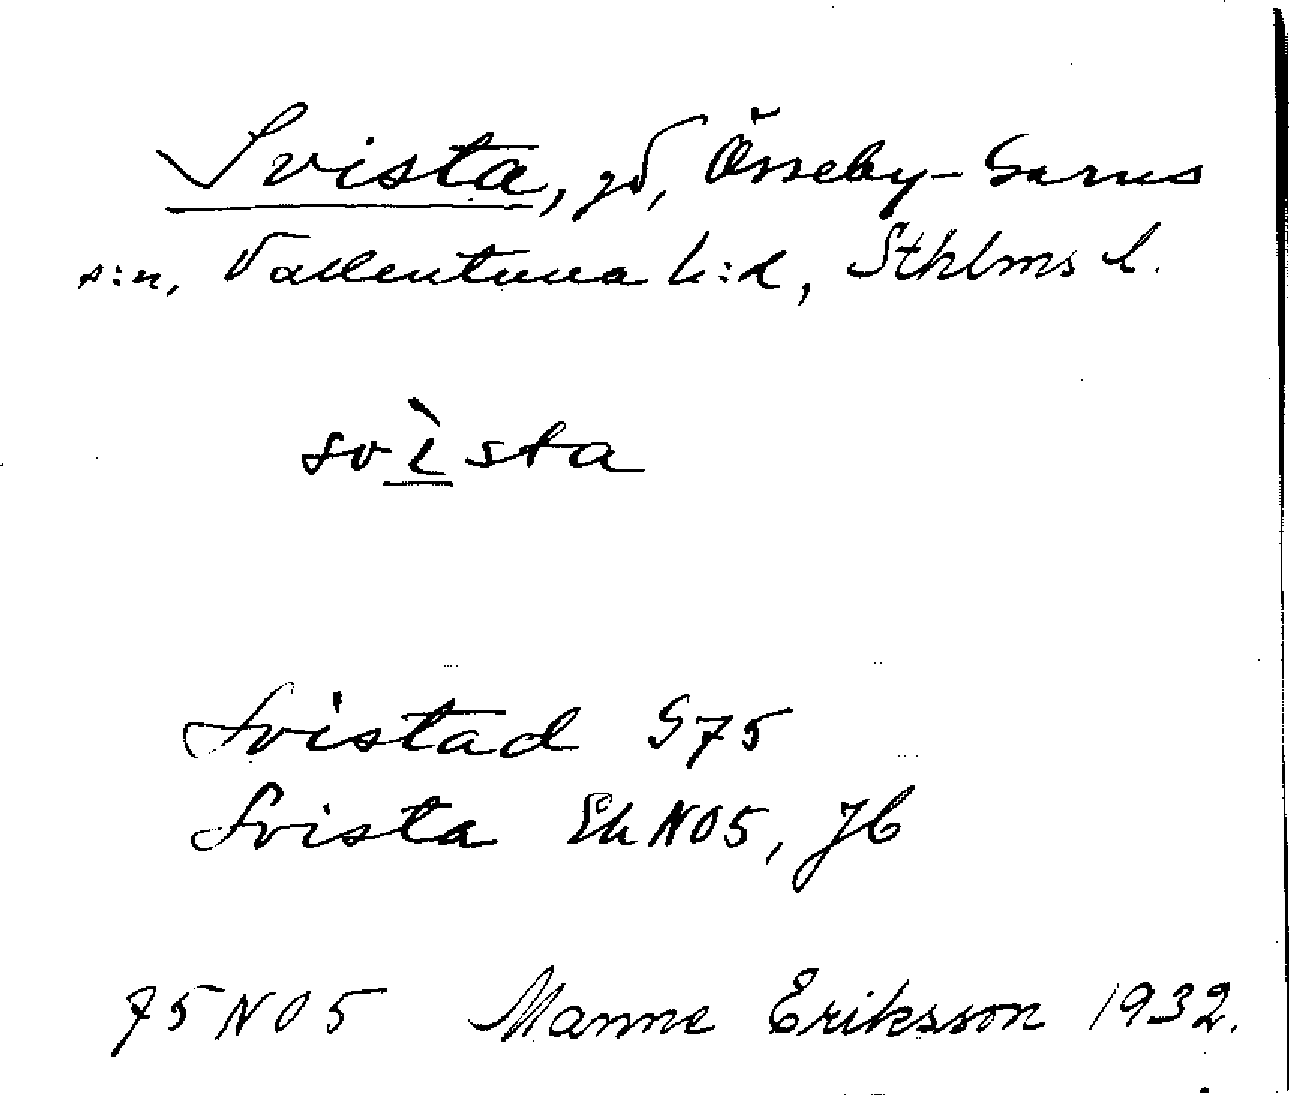 Svista, gd, Össeby-Garns
s:n, Vallentuna h:d, Sthlms l.
svìsta
Svistad G75
Svista Ek NO5, Jb
75 NO5 Manne Eriksson 1932.